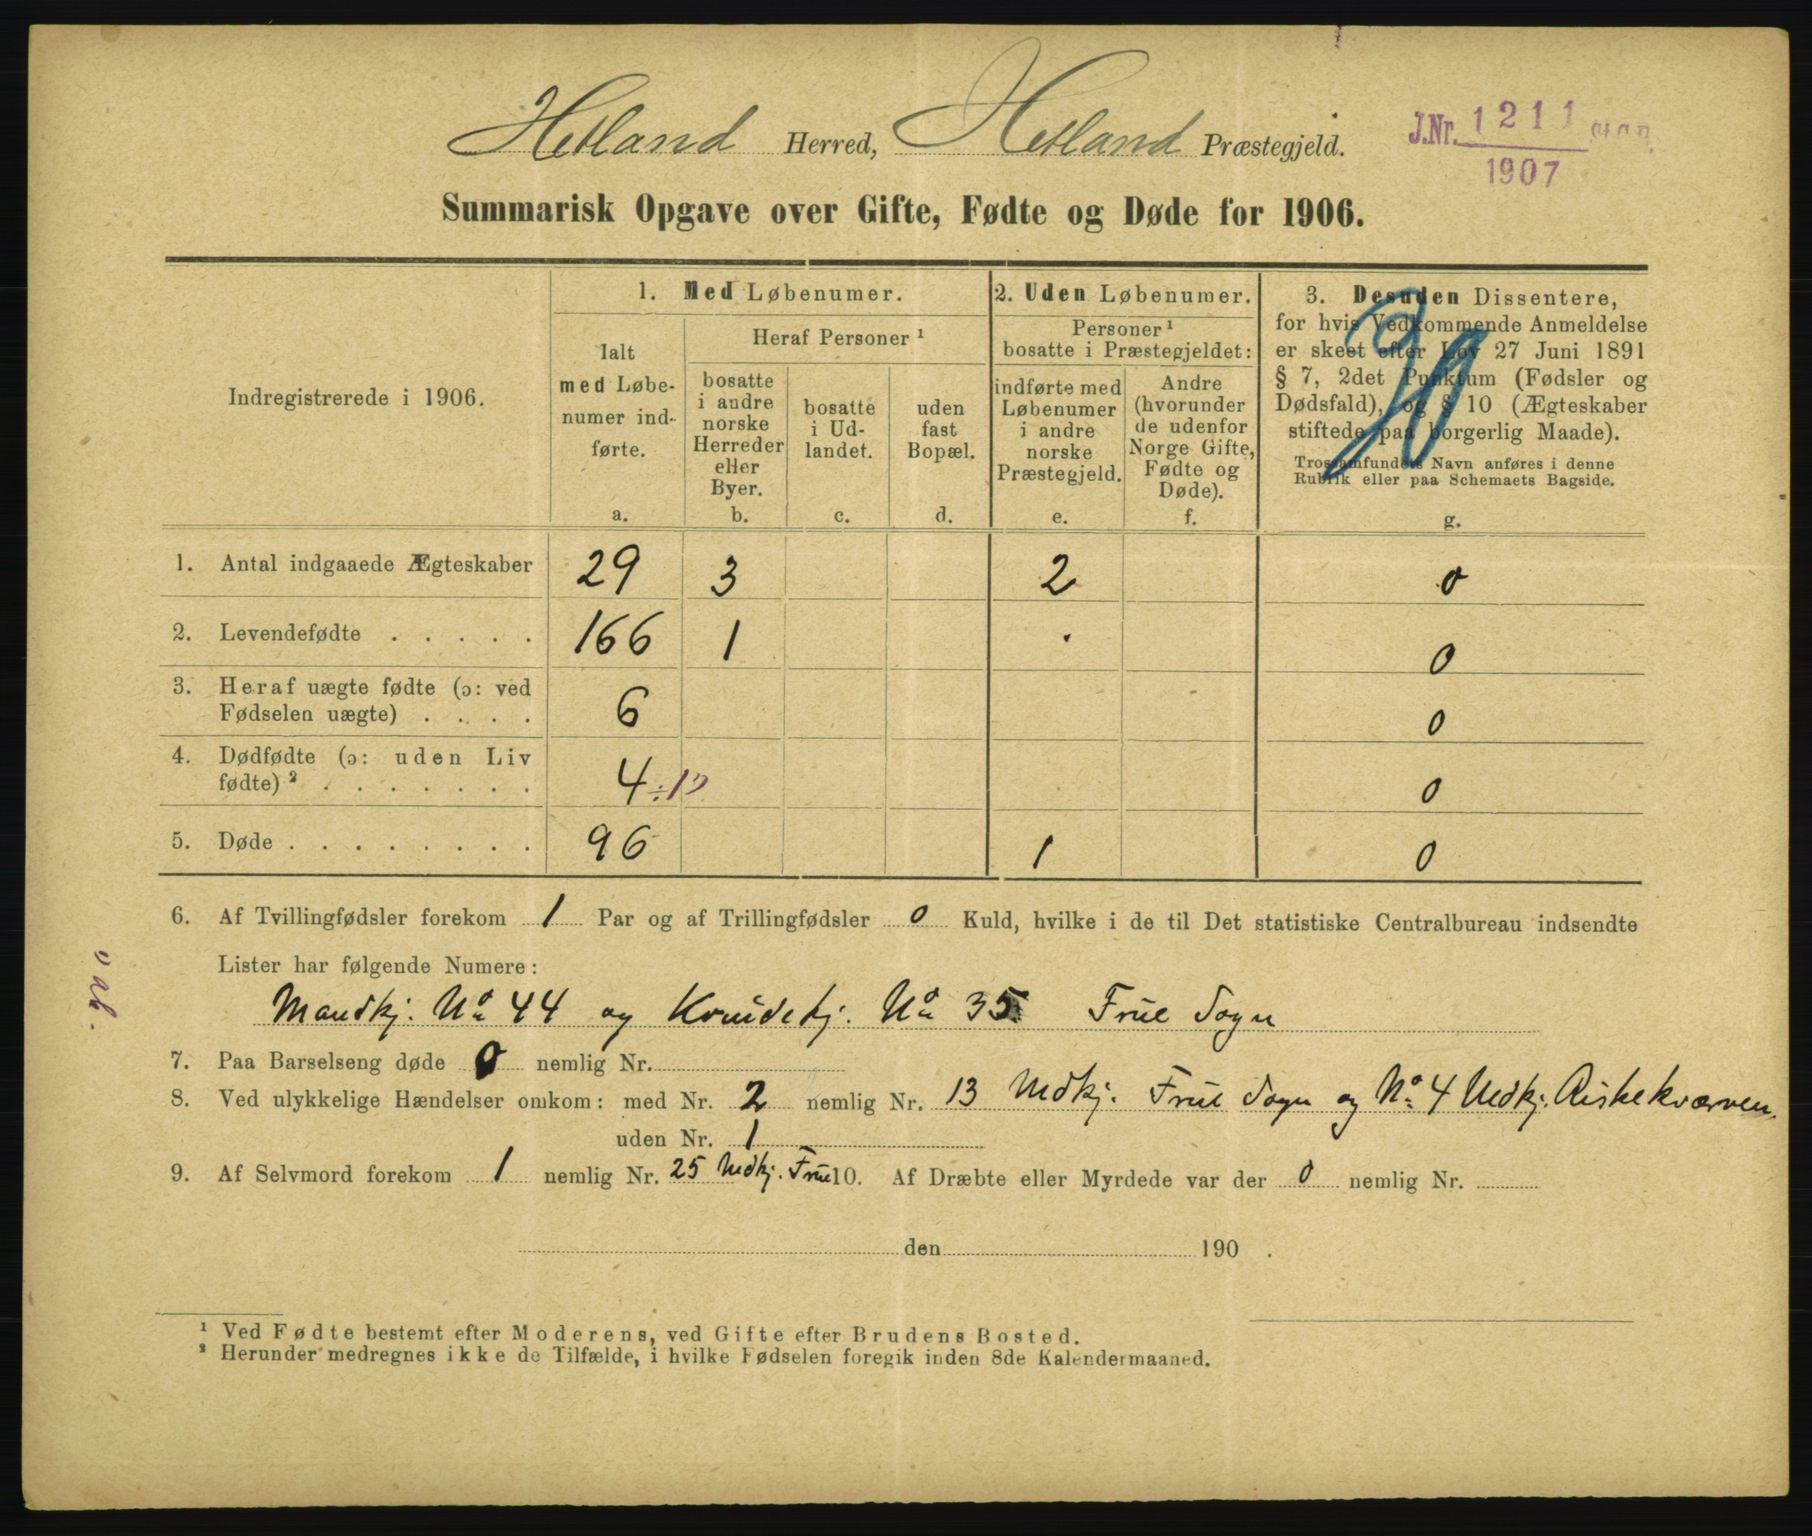 Hetland Herred, Hetland Præstegjeld.
J.Nr. 1211
1907
Summarisk Opgave over Gifte, Fødte og Døde for 1906.
Indregistrerede i 1906.
1. Med Løbenumer.
Ialt
med Løbe-
numer ind-
førte.
a.
Heraf Personer ¹
bosatte
i andre
norske
Herreder
eller
Byer.
b.
bosatte
i Ud-
landet.
c.
uden
fast
Bopæl.
d.
2. Uden Løbenumer.
Personer ¹
bosatte i Præstegjeldet:
indførte med
Løbenumer
i andre
norske
Præstegjeld.
e.
Andre
(hvorunder
de udenfor
Norge Gifte,
Fødte og
Døde).
f.
3. Desuden Dissentere,
for hvis Vedkommende Anmeldelse
er skeet efter Lov 27 Juni 1891
§ 7, 2det Punktum (Fødsler og
Dødsfald), og § 10 (Ægteskaber
stiftede paa borgerlig Maade).
Trossamfundets Navn anføres i denne
Rubrik eller paa Schemaets Bagside.
g.
1. Antal indgaaede Ægteskaber 29 3 2 0
2. Levendefødte . . . . . 166 1 · 0
3. Heraf uægte fødte (ɔ: ved
Fødselen uægte) . . . . 6 0
4. Dødfødte (ɔ: uden Liv
fødte) ² . . . . . . . 4 ÷1 0
5. Døde . . . . . . . . 96 1 0
6. Af Tvillingfødsler forekom 1 Par og af Trillingfødsler 0 Kuld, hvilke i de til Det statistiske Centralbureau indsendte
Lister har følgende Numere:
Mandkj. No 44 og Kvindekj. No 35 Frue Sogn
7. Paa Barselseng døde 0 nemlig Nr.
8. Ved ulykkelige Hændelser omkom: med Nr. 2 nemlig Nr. 13 Mdkj. Frue Sogn og No 4 Mdkj. Riskekværven.
uden Nr. 1
9. Af Selvmord forekom 1 nemlig Nr. 25 Mdkj. Frue 10. Af Dræbte eller Myrdede var der 0 nemlig Nr.
den 190 .
¹ Ved Fødte bestemt efter Moderens, ved Gifte efter Brudens Bosted.
² Herunder medregnes ikke de Tilfælde, i hvilke Fødselen foregik inden 8de Kalendermaaned.